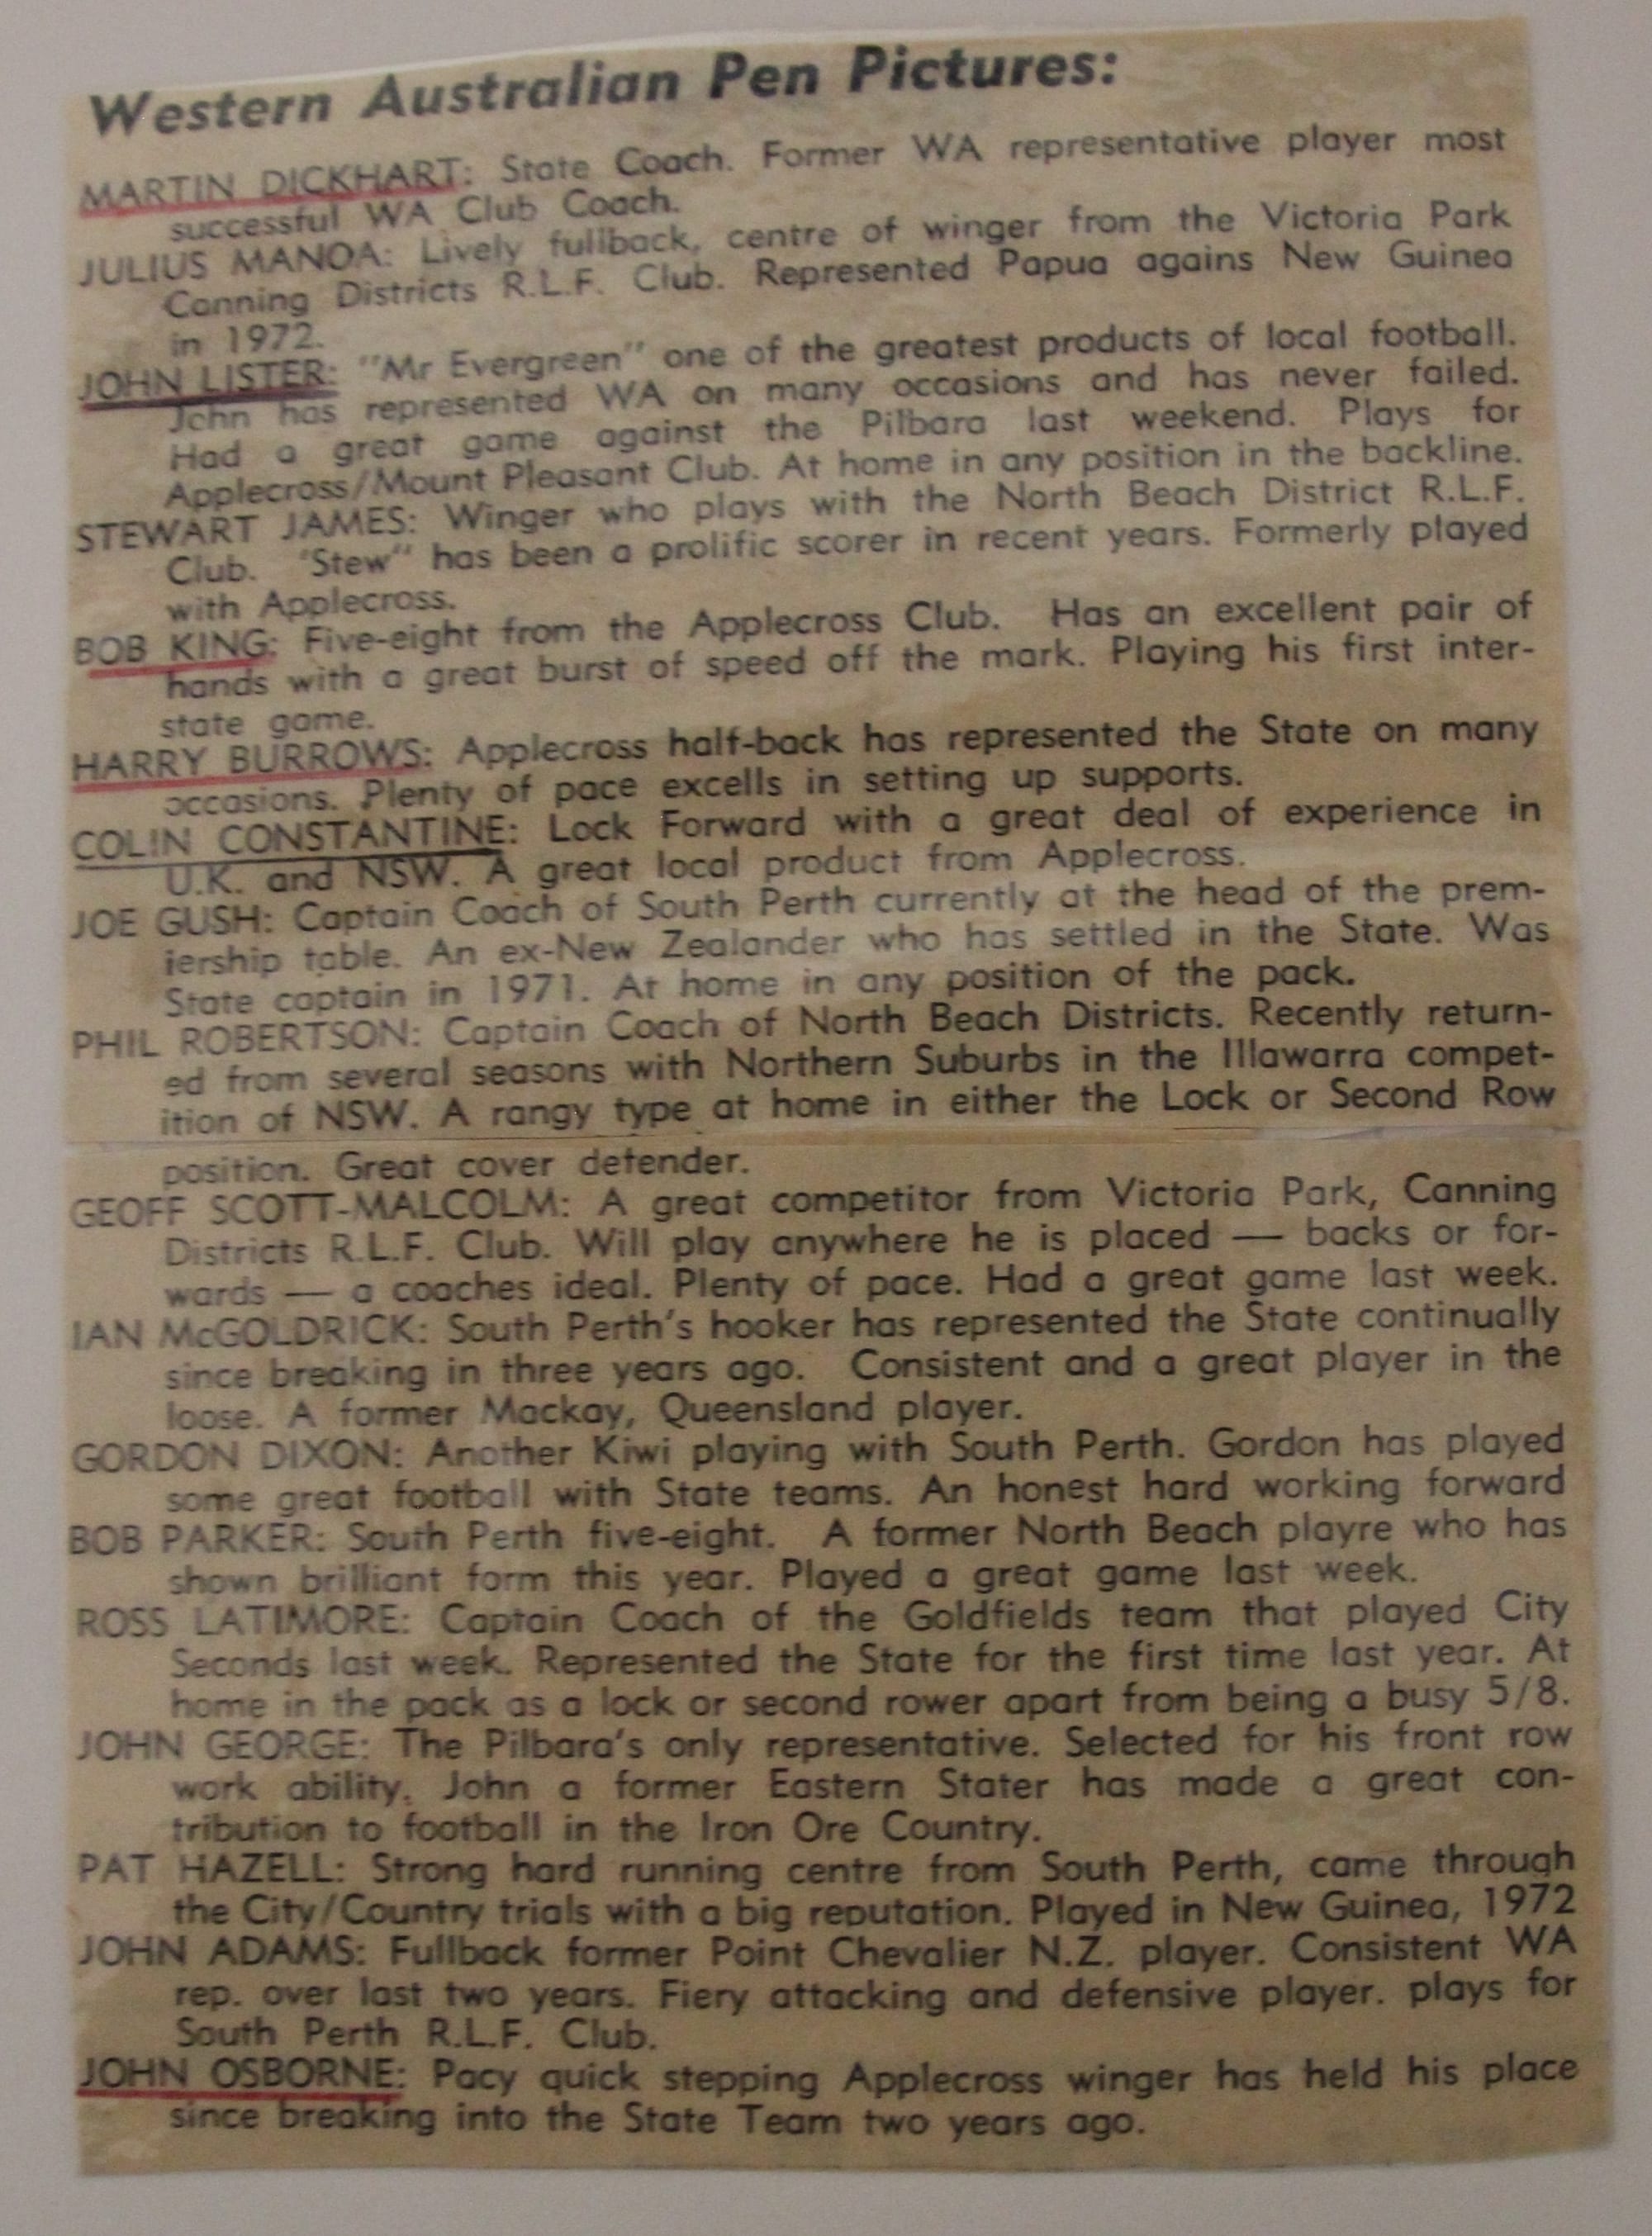 Western Australian Pen Pictures:
MARTIN DICKHART: State Coach. Former WA representative player most
successful WA Club Coach.
JULIUS MANOA: Lively fullback, centre of winger from the Victoria Park
Canning Districts R.L.F. Club. Represented Papua agains New Guinea
in 1972.
JOHN LISTER: "Mr Evergreen" one of the greatest products of local football.
John has represented WA on many occasions and has never failed.
Had a great game against the Pilbara last weekend. Plays for
Applecross/Mount Pleasant Club. At home in any position in the backline.
STEWART JAMES: Winger who plays with the North Beach District R.L.F.
Club. "Stew" has been a prolific scorer in recent years. Formerly played
with Applecross.
BOB KING: Five-eight from the Applecross Club. Has an excellent pair of
hands with a great burst of speed off the mark. Playing his first inter-
state game.
HARRY BURROWS: Applecross half-back has represented the State on many
occasions. Plenty of pace excells in setting up supports.
COLIN CONSTANTINE: Lock Forward with a great deal of experience in
U.K. and NSW. A great local product from Applecross.
JOE GUSH: Captain Coach of South Perth currently at the head of the prem-
iership table. An ex-New Zealander who has settled in the State. Was
State captain in 1971. At home in any position of the pack.
PHIL ROBERTSON: Captain Coach of North Beach Districts. Recently return-
ed from several seasons with Northern Suburbs in the Illawarra compet-
ition of NSW. A rangy type at home in either the Lock or Second Row
position. Great cover defender.
GEOFF SCOTT-MALCOLM: A great competitor from Victoria Park, Canning
Districts R.L.F. Club. Will play anywhere he is placed — backs or for-
wards — a coaches ideal. Plenty of pace. Had a great game last week.
IAN McGOLDRICK: South Perth's hooker has represented the State continually
since breaking in three years ago. Consistent and a great player in the
loose. A former Mackay, Queensland player.
GORDON DIXON: Another Kiwi playing with South Perth. Gordon has played
some great football with State teams. An honest hard working forward
BOB PARKER: South Perth five-eight. A former North Beach playre who has
shown brilliant form this year. Played a great game last week.
ROSS LATIMORE: Captain Coach of the Goldfields team that played City
Seconds last week. Represented the State for the first time last year. At
home in the pack as a lock or second rower apart from being a busy 5/8.
JOHN GEORGE: The Pilbara's only representative. Selected for his front row
work ability. John a former Eastern Stater has made a great con-
tribution to football in the Iron Ore Country.
PAT HAZELL: Strong hard running centre from South Perth, came through
the City/Country trials with a big reputation. Played in New Guinea, 1972
JOHN ADAMS: Fullback former Point Chevalier N.Z. player. Consistent WA
rep. over last two years. Fiery attacking and defensive player. plays for
South Perth R.L.F. Club.
JOHN OSBORNE: Pacy quick stepping Applecross winger has held his place
since breaking into the State Team two years ago.